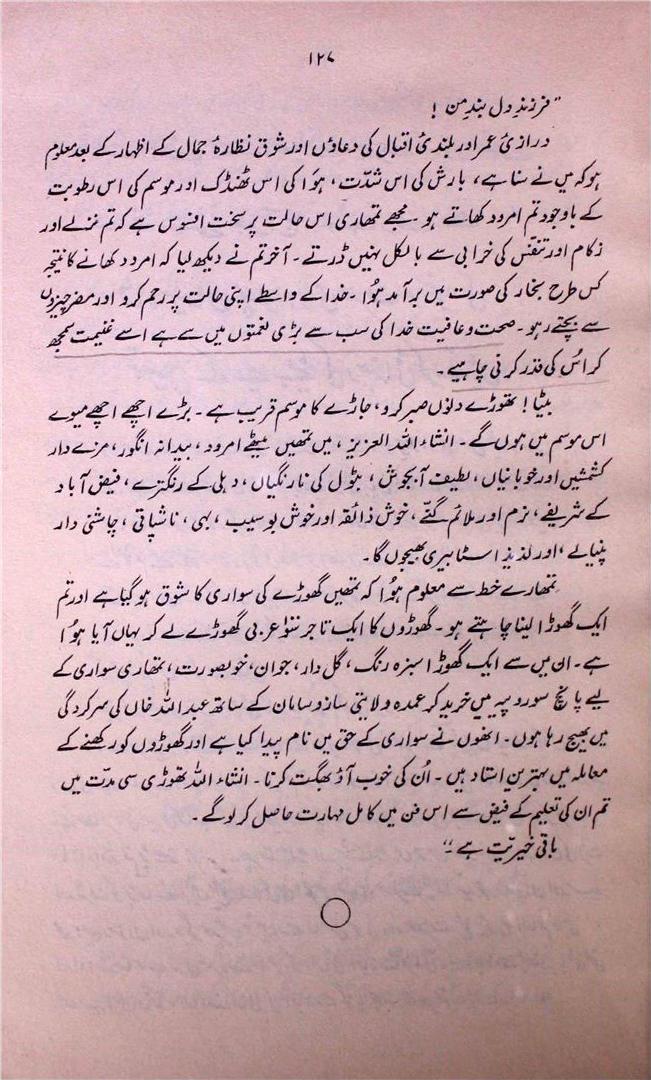 ۱۲۷
"فرزندِ دل بندِ من !
درازیٔ عمر اور بلندیٔ اقبال کی دعاؤں اور شوقِ نظارۂ جمال کے اظہار کے بعد معلوم
ہو کہ میں نے سنا ہے، بارش کی اس شدّت، ہَوا کی اس ٹھنڈک اور موسم کی اس رطوبت
کے باوجود تم امرود کھاتے ہو۔ مجھے تمھاری اس حالت پر سخت افسوس ہے کہ تم نزلے اور
زکام اور تنفّس کی خرابی سے بالکل نہیں ڈرتے۔ آخر تم نے دیکھ لیا کہ امرود کھانے کا نتیجہ
کس طرح بخار کی صورت میں برآمد ہُوا۔ خدا کے واسطے اپنی حالت پر رحم کرو اور مضر چیزوں
سے بچتے رہو۔ صحت و عافیت خدا کی سب سے بڑی نعمتوں میں سے ہے اسے غنیمت سمجھ
کر اُس کی قدر کرنی چاہیے۔
بیٹا! تھوڑے دنوں صبر کرو، جاڑے کا موسم قریب ہے۔ بڑے اچھے اچھے میوے
اس موسم میں ہوں گے۔ انشاء اللہ العزیز، میں تمھیں میٹھے امرود، بیدانہ انگور، مزے دار
کشمشیں اور خوبانیاں، لطیف آبجوش، بٹول کی نارنگیاں، دہلی کے رنگترے، فیض آباد
کے شریفے، نرم اور ملائم گنّے، خوش ذائقہ اور خوش بو سیب، بہی، ناشپاتی، چاشنی دار
پنیالے، اور لذیذ اسٹابیری بھیجوں گا۔
تمھارے خط سے معلوم ہُوا کہ تمھیں گھوڑے کی سواری کا شوق ہو گیا ہے اور تم
ایک گھوڑا لینا چاہتے ہو۔ گھوڑوں کا ایک تاجر ننوا عربی گھوڑے لے کر یہاں آیا ہُوا
ہے۔ ان میں سے ایک گھوڑا سبزہ رنگ، گل دار، جوان، خوبصورت، تمھاری سواری کے
لیے پانچ سو روپیہ میں خرید کر عمدہ ولایتی ساز و سامان کے ساتھ عبد اللہ خاں کی سرکردگی
میں بھیج رہا ہوں۔ انھوں نے سواری کے حق میں نام پیدا کیا ہے اور گھوڑوں کو رکھنے کے
معاملہ میں بہترین استاد ہیں۔ اُن کی خوب آؤ بھگت کرنا۔ انشاء اللہ تھوڑی سی مدّت میں
تم ان کی تعلیم کے فیض سے اس فن میں کامل مہارت حاصل کر لو گے۔
باقی خیریّت ہے۔"